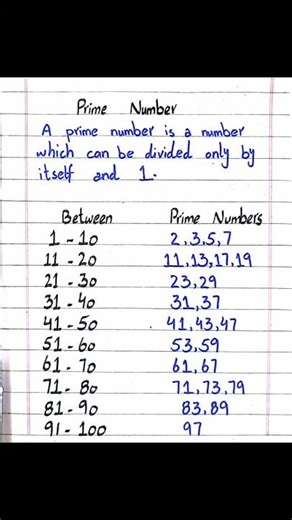 Prime Number
A prime number is a number
which can be divided only by
itself and 1.
Between Prime Numbers
1 - 10 2,3,5,7
11 - 20 11,13,17,19
21 - 30 23,29
31 - 40 31,37
41 - 50 41,43,47
51 - 60 53,59
61 - 70 61,67
71 - 80 71,73,79
81 - 90 83,89
91 - 100 97